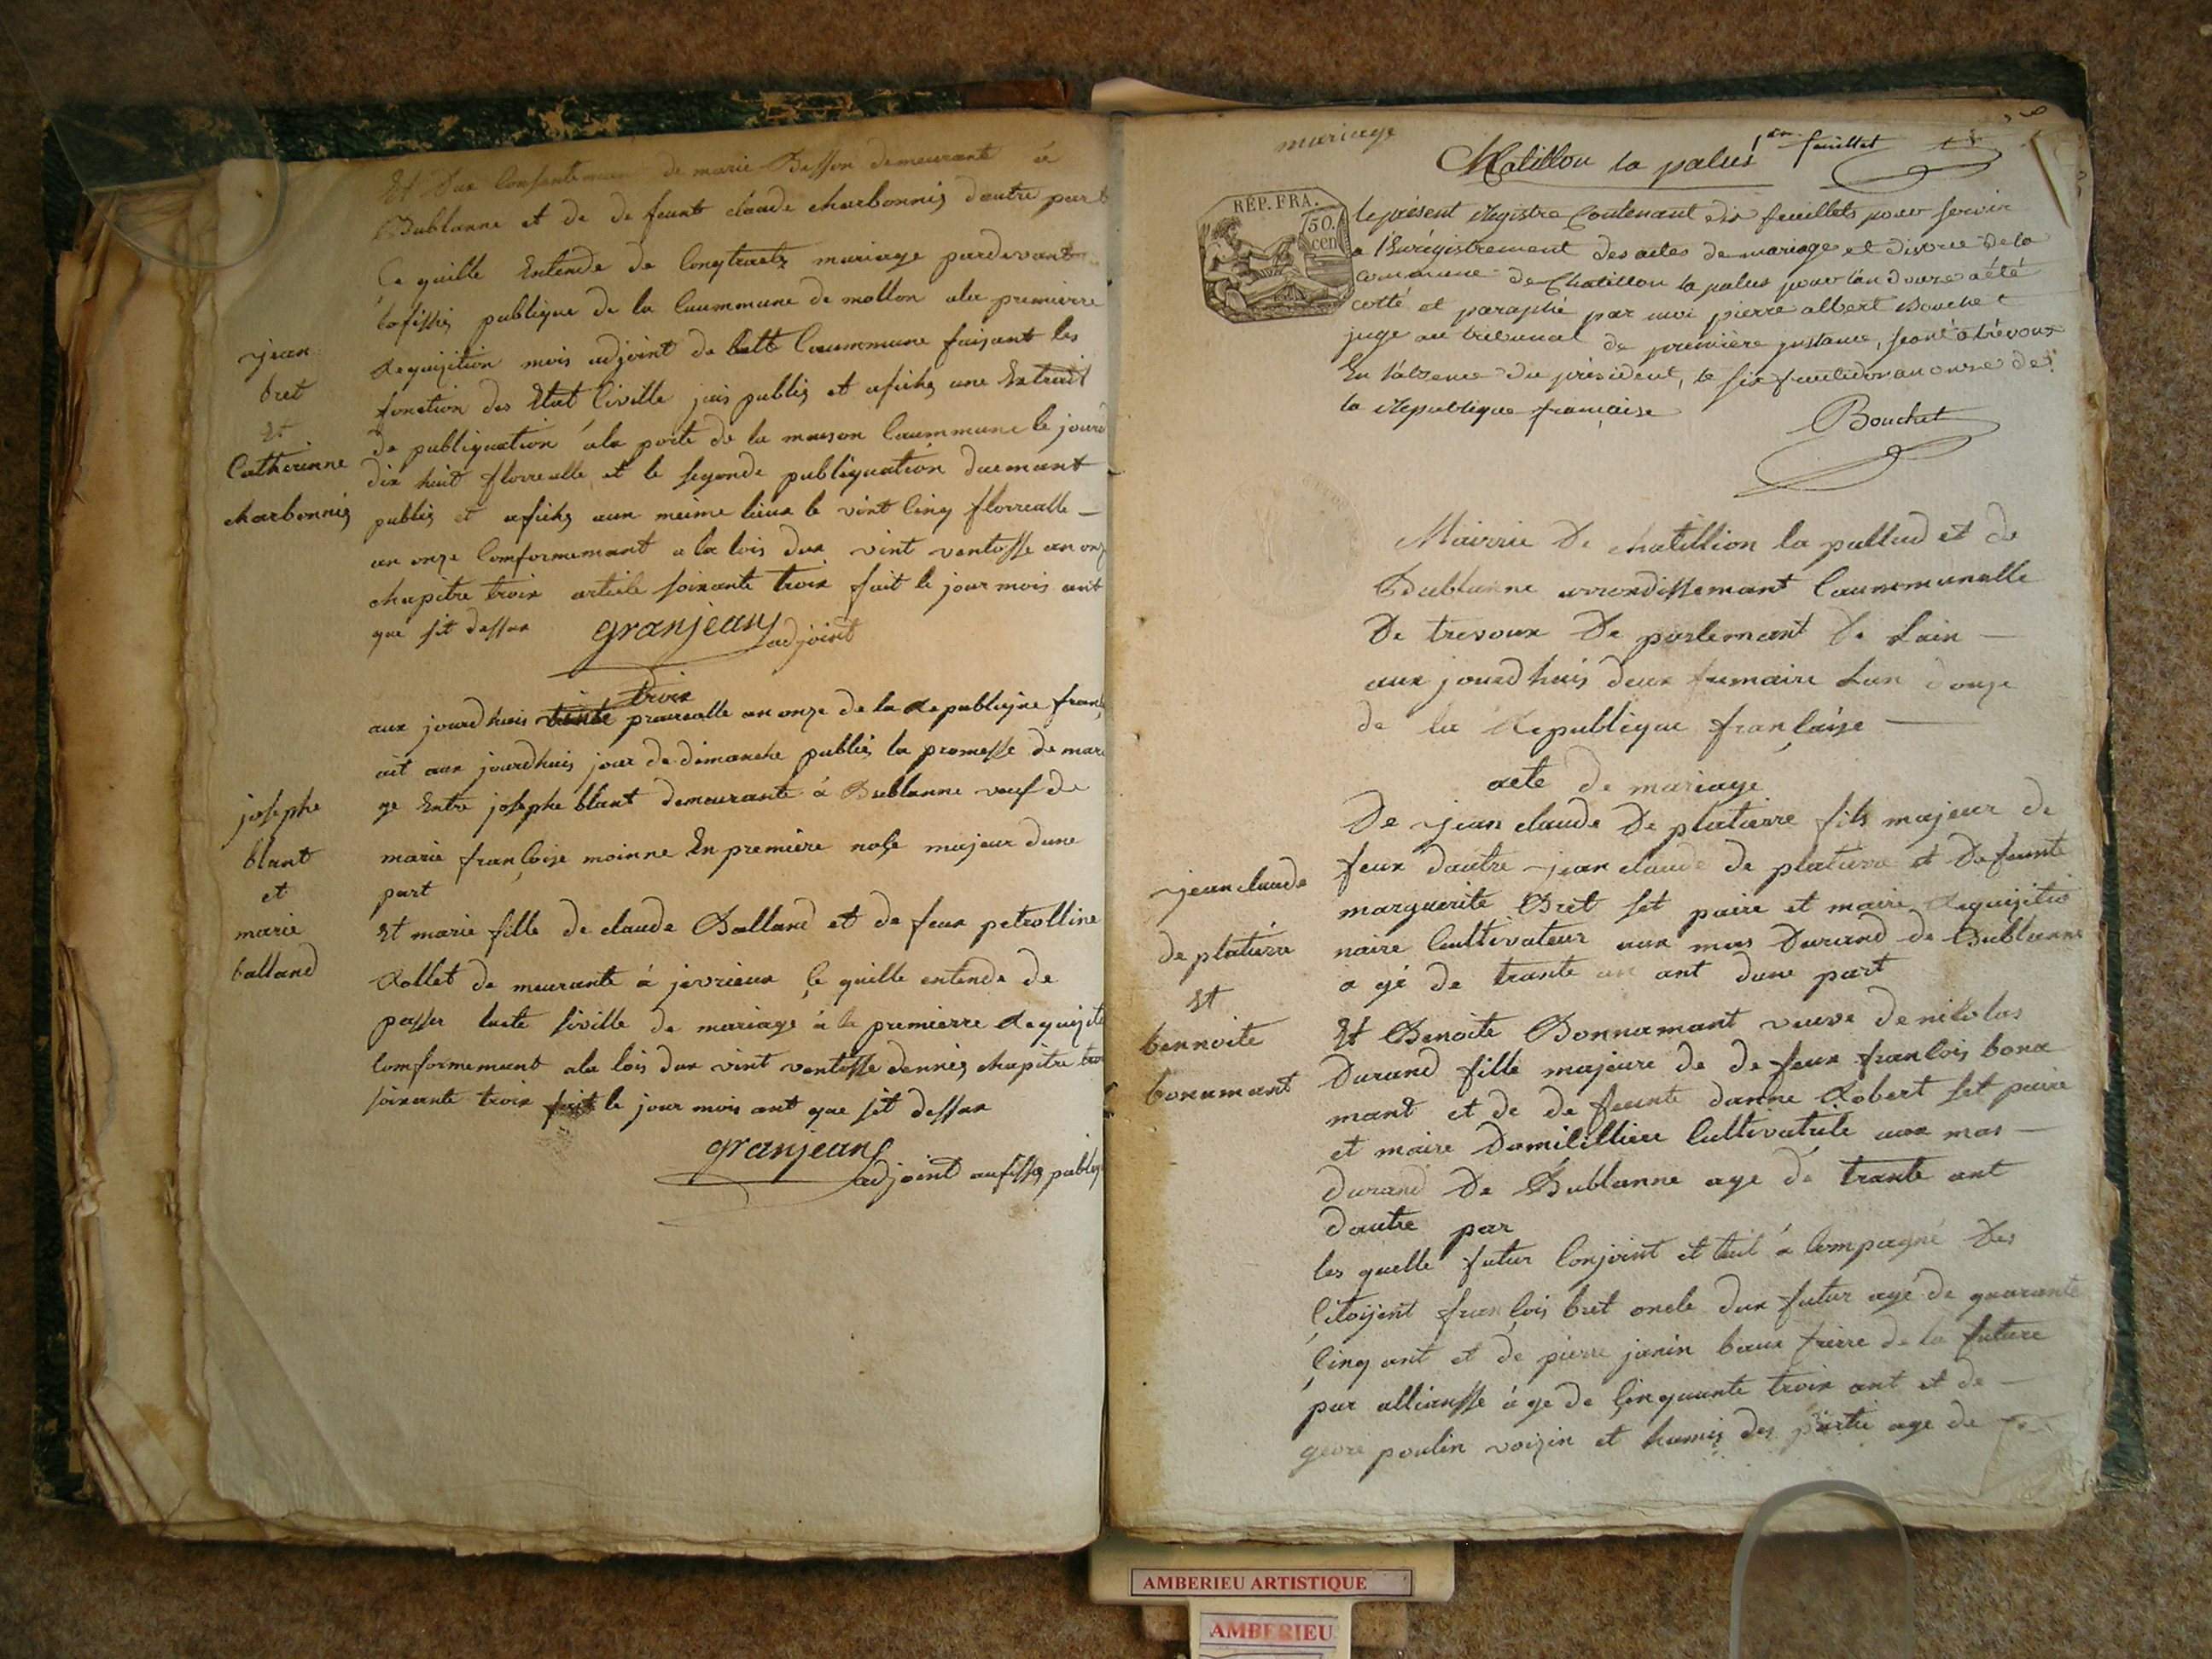 Et dux Consentemen de marie Besson demeurant à
Bublanne et de de feunt claude charbonnis dautre part
Ce quille Entende de Congtractz mariage pardevant
lofissis publique de la Caummune de mollon ala premierre
Requizition mois adjoint de latt Caummune faisant les
fonction des Etat Civille jais publis et afichez une Extrait
de publiquation ala porte de la maison Caummune le jourd
dix huit florrealle et le segonde publiquation duemant
publis et afichz aux meime lieux le vint Cinq florrealle —
an onze Comformemant a la lois dux vint ventosse an onz
chapitre troix article soixante troix fait le jour mois ant
que sit dessux granjean adjoint
jean
bret
Et
Catherinne
charbonnis
troix
aux jourdhuis trente prairealle an onze de la Republique franç
ait aux jourdhuis jour de dimanche publiés la promesse de mari
ge Entre josephe blant demeurante à Bublanne veuf de
marie françoise moinne En premiere nosse majeur dune
part
Et marie fille de claude Balland et de feux petrolline
Rollet de meurante à jevrieux Ce quille entende de
passer lacte siville de mariage à la premierre Requizite
Comformemant ala lois dux vint ventosse dernies chapitre trois
soixante troix fait le jour mois ant que sit dessux
granjean
adjoint aufissis publiq
josephe
blant
et
marie
balland
mariage
Chatillon la palus 1er feuillet
RÉP. FRA.
50.
cen
le présent Registre Contenant dix feuillets pour servir
a l'Enregistrement des actes de mariage et divorce de la
commune de Chatillon la palus pour l'an douze a été
cotté et paraphé par moi pierre albert Bouchet
juge au tribunal de première instance, séant à trévoux
En l'absence du président, le six fructidor an onze de
la République française
Bouchet
Mairrie De chatillion la pallud et de
Bublanne arrondissemant Caummunalle
De trevoux De parlemant De Lain —
aux jourdhuis deux frimaire Lan douze
de la Republique françaize —
acte de mariage
De jean claude De platierre fils majeur de
feux dautre jean claude de platierre et De feunte
marguerite Bret set paire et maire Requizitio
naire Cultivateur aux mas Durand de Bublanne
a gé de trante un ant dune part
Et Benoite Bonnamant veuve de nikolas
Durand fille majeure de de feux francois bona
mant et de de feunte danne Robert set paire
et maire Domicillier Cultivatrile aux mas —
durand De Bublanne age de trante ant
dautre par
les quelle futur Conjoint et tait a Compagné Des
Citoijent francois bret oncle dux futur agé de quarante
Cinq ant et de pierre janin baux frierre de la future
par alliansse à ge de Cinquante troix ant et de —
geore poulin voizin et hamis des partie age de
jean claude
de platierre
Et
bennoite
bonamant
AMBERIEU ARTISTIQUE
AMBERIEU